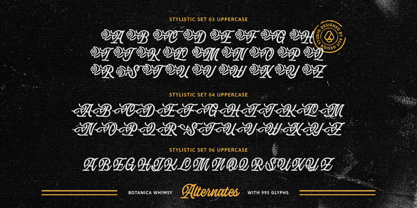 STYLISTIC SET 03 UPPERCASE
A B C D E F G H
I J K L M N O P Q
R S T U V W X Y Z
STYLISTIC SET 04 UPPERCASE
A B C D E F G H I J K L M
N O P Q R S T U V W X Y Z
STYLISTIC SET 06 UPPERCASE
A B E G H I K L M N O Q R S U V X Z
BOTANICA WHIMSY Alternates WITH 995 GLYPHS